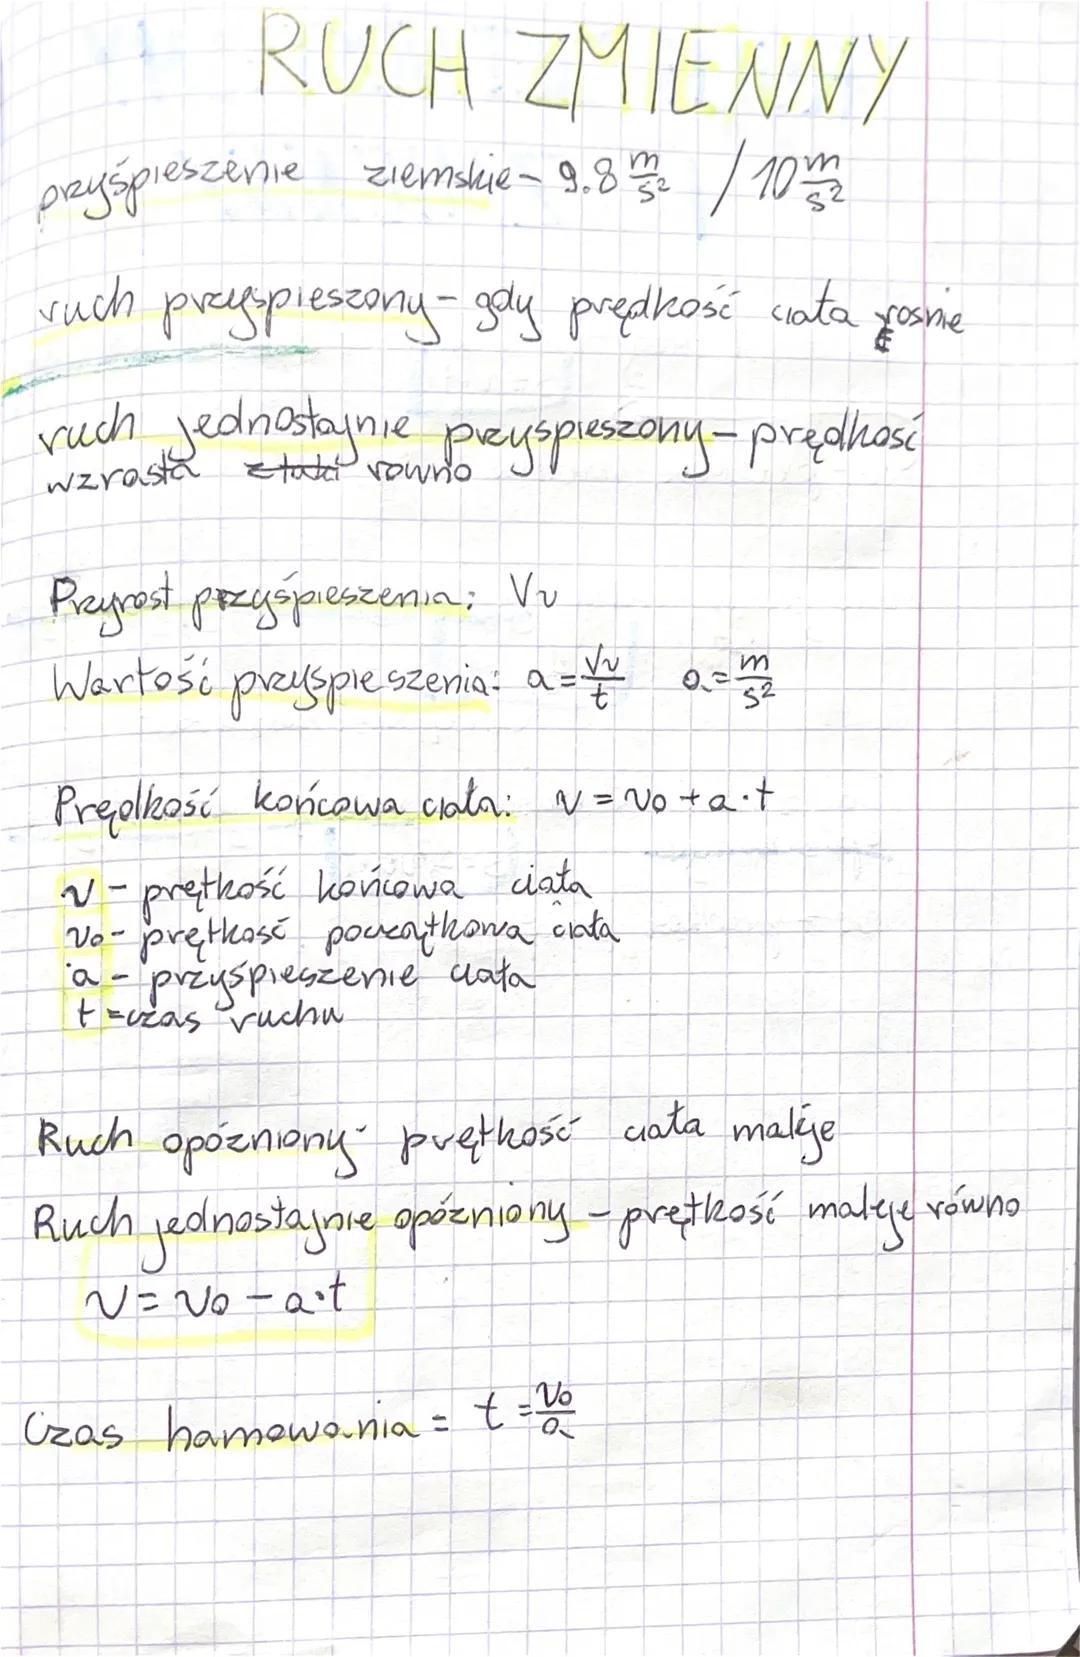 RUCH ZMIENNY
przyśpieszenie ziemskie - 9.8 m/s² / 10 m/s²
ruch przyspieszony - gdy prędkość ciała rośnie
ruch jednostajnie przyspieszony - prędkość
wzrasta równo
Przyrost przyśpieszenia: Vv
Wartość przyspieszenia: a = Vv/t a = m/s²
Prędkość końcowa ciała: v = v₀ + a·t
v - prętkość końcowa ciała
v₀ - prętkość początkowa ciała
a - przyśpieszenie ciała
t = czas ruchu
Ruch opózniony - prętkość ciała maleje
Ruch jednostajnie opózniony - prętkość maleje równo
v = v₀ - a·t
Czas hamowania = t = v₀/a